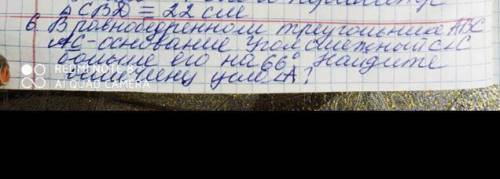 АСВД = 22 см
6. В равнобедренном треугольнике АВС
АС-основание угол смежный с ∠С
больше его на 66° Найдите
величину угла ∠А?
REDMI NOTE 8
AI QUAD CAMERA